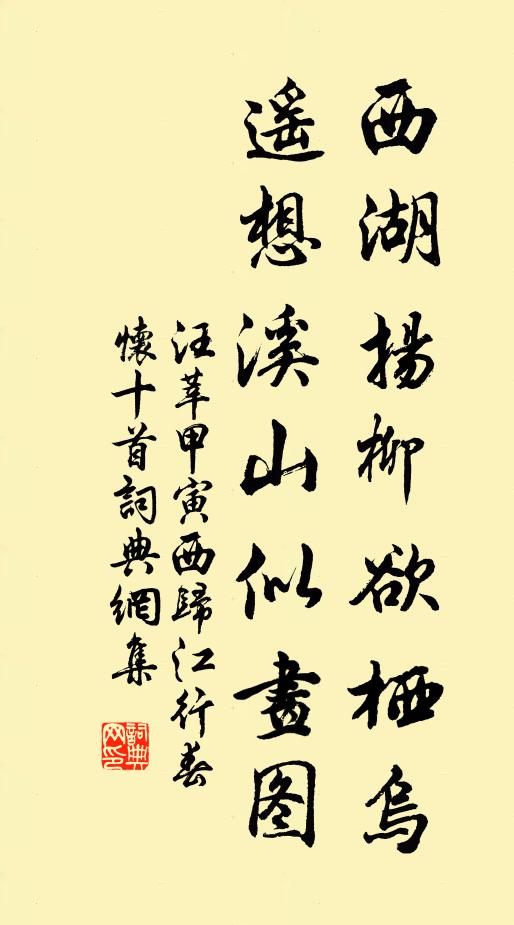 西湖揚柳欲栖烏
遥想溪山似畫图
汪莘甲寅西歸江行春
懷十首詞典網集
詞典网印